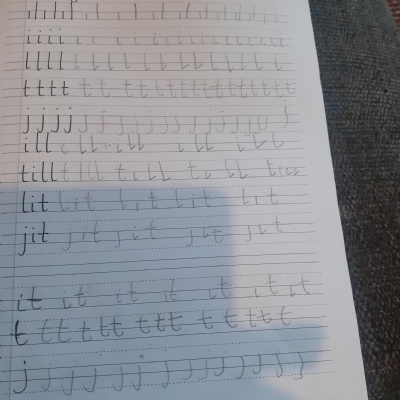 iiii i i i i i i i i i i i
llll l l l l l l l l l l l l
tttt t t t t t t t t t t t t t t
jjjj j j j j j j j j j j j j j
ill ill ill ill ill
till till till till till
lit lit lit lit lit
jit jit jit jit jit
it it it it it it it
t t t t t t t t t t t t t t
j j j j j j j j j j j j j